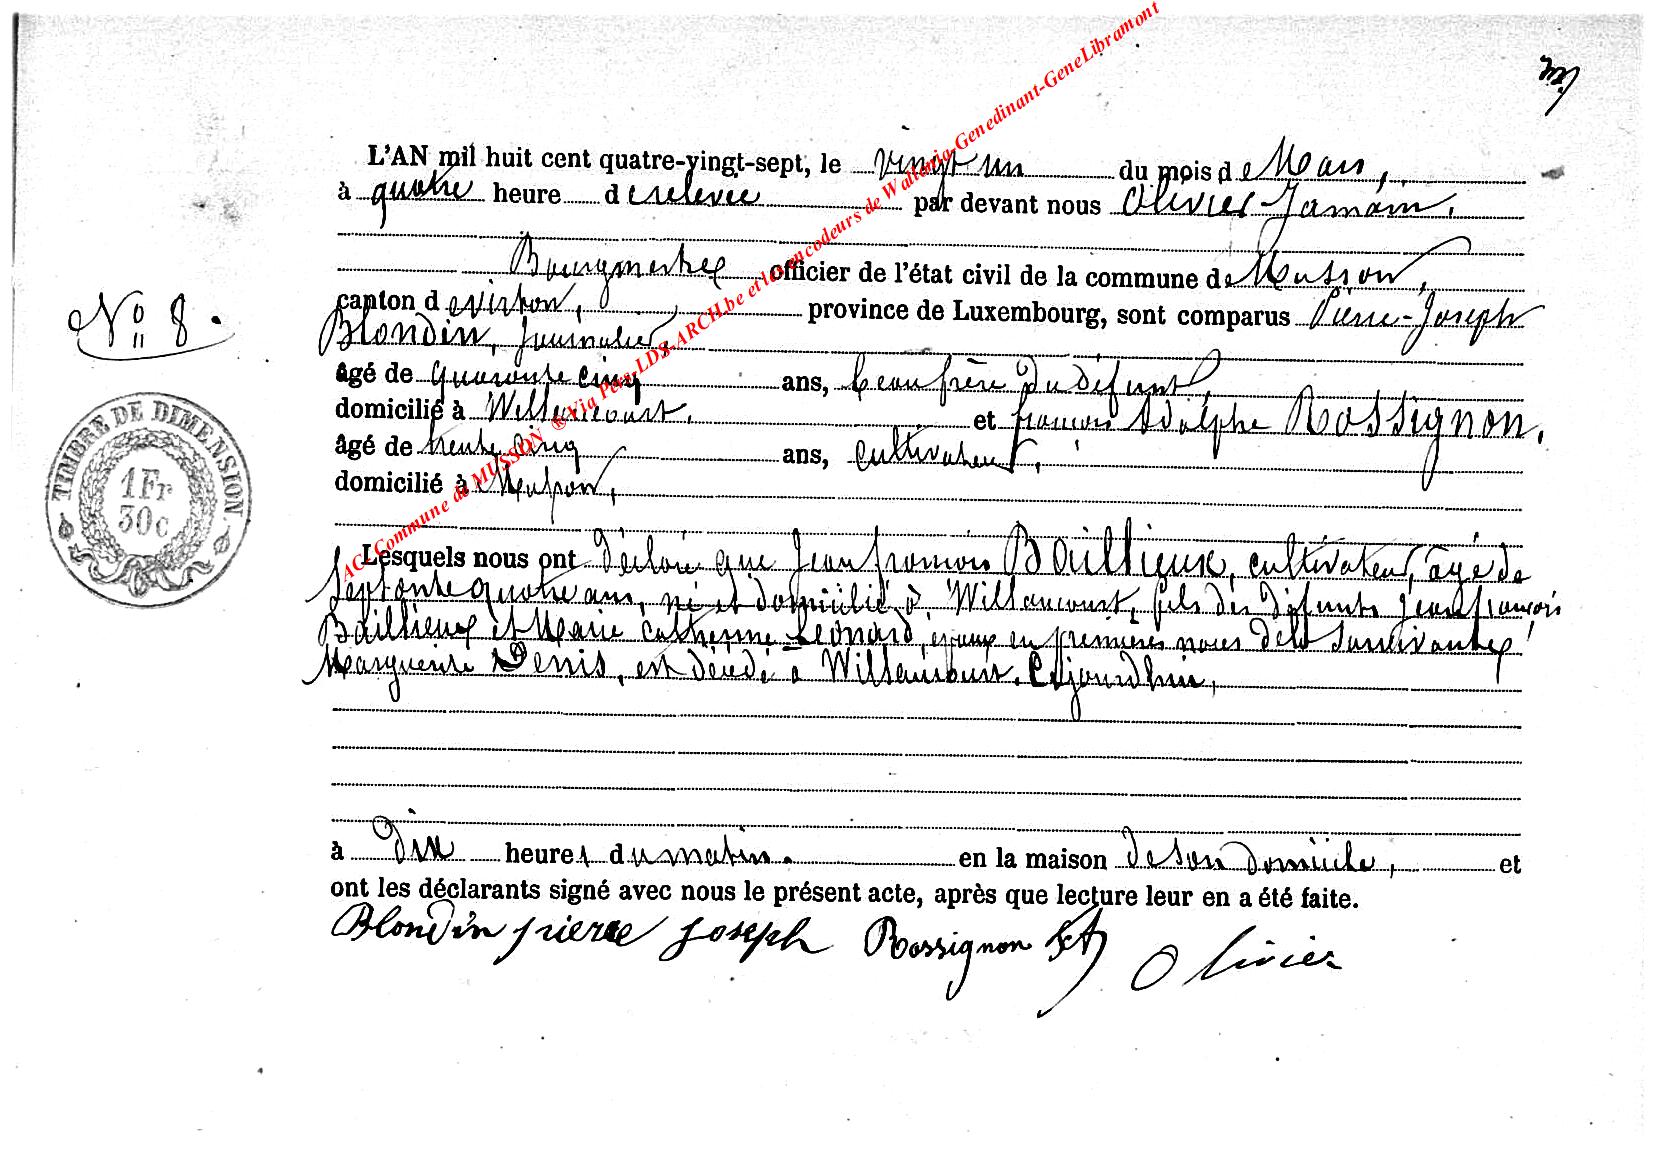 L'AN mil huit cent quatre-vingt-sept, le vingt un du mois de Mars,
à quatre heure de relevée par devant nous Olivier Jamain,
Bourgmestre officier de l'état civil de la commune de Musson,
canton de Virton, province de Luxembourg, sont comparus Pierre-Joseph
N° 8.
Blondin, journalier,
âgé de quarante cinq ans, beau frère du défunt,
domicilié à Willancourt, et françois Adolphe Rossignon,
âgé de trente cinq ans, cultivateur,
domicilié à Musson,
TIMBRE DE DIMENSION
1 Fr
30 c
Lesquels nous ont déclaré que Jean françois Baillieux, cultivateur, âgé de
septante quatre ans, né et domicilié à Willancourt, fils des défunts Jean françois
Baillieux et Marie Catherine Léonard, époux en premières noces de la survivante
Marguerite Denis, est décédé à Willancourt, Cejourdhui,
à dix heures du matin. en la maison de son domicile, et
ont les déclarants signé avec nous le présent acte, après que lecture leur en a été faite.
Blondin pierre joseph Rossignon Olivier
AC- Commune de MUSSON ® Via Pers-LDS-ARCH.be et les encodeurs de Wallonia-Genedinant-GeneLibramont